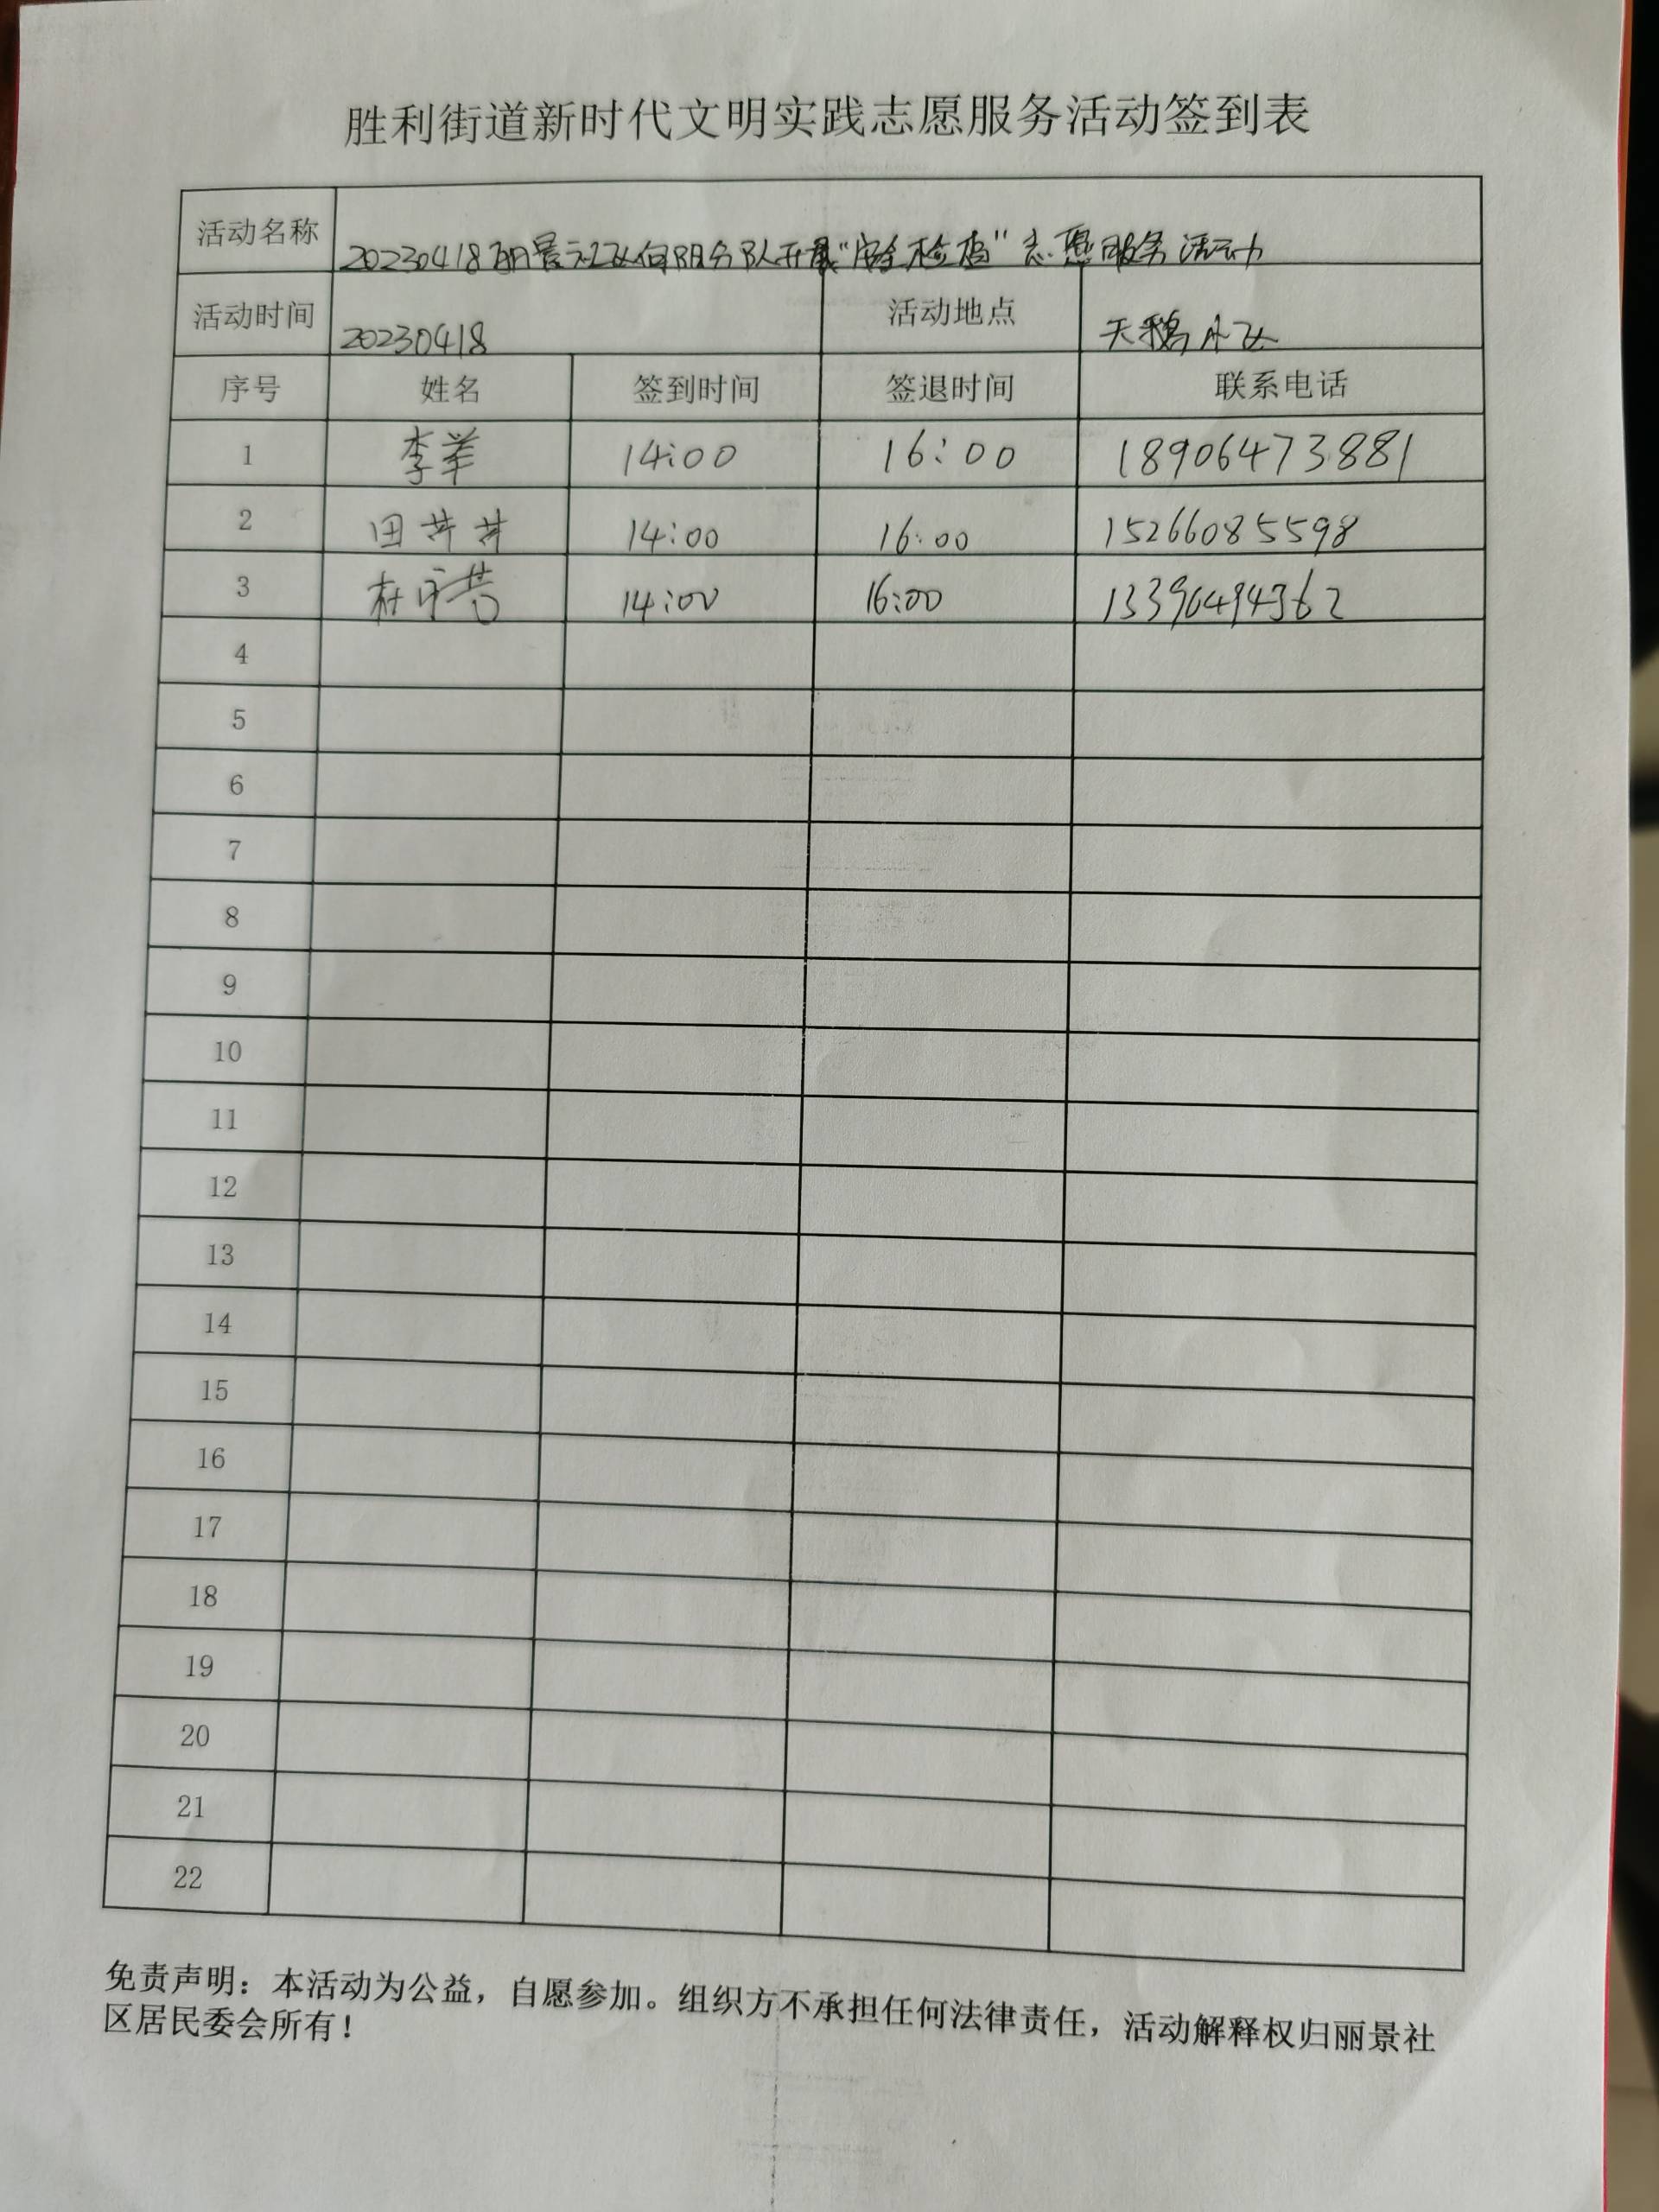 胜利街道新时代文明实践志愿服务活动签到表
活动名称 20230418丽景社区向阳分队开展“安全检查”志愿服务活动
活动时间 20230418 活动地点 天鹅小区
序号 姓名 签到时间 签退时间 联系电话
1 李 14:00 16:00 18906473881
2 田芊芊 14:00 16:00 15266085598
3 杜 14:00 16:00 13396494362
4
5
6
7
8
9
10
11
12
13
14
15
16
17
18
19
20
21
22
免责声明：本活动为公益，自愿参加。组织方不承担任何法律责任，活动解释权归丽景社
区居民委会所有！